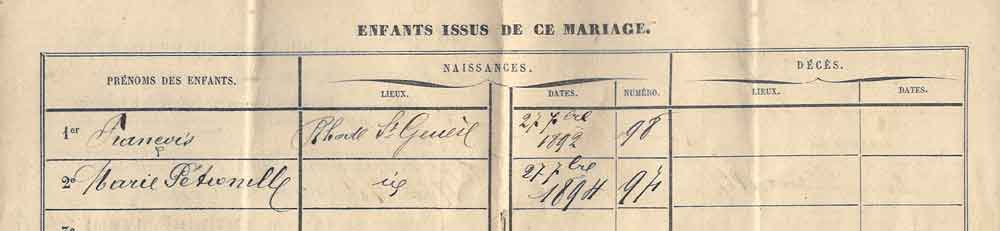 ENFANTS ISSUS DE CE MARIAGE.
PRÉNOMS DES ENFANTS. NAISSANCES. DÉCÈS.
LIEUX. DATES. NUMÉRO. LIEUX. DATES.
1er François Rhode St Genèse 27 7bre 1892 98
2e Marie Pétronille 27 7bre 1894 97